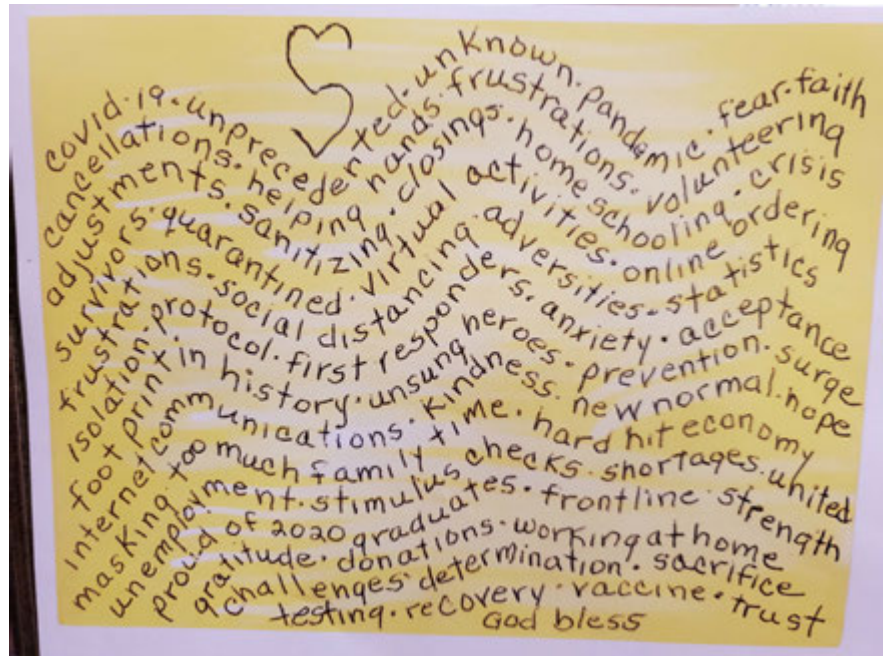 covid-19·unprecedented·unknown·pandemic·fear·faith
cancellations·helping hands·frustrations·volunteering
adjustments·sanitizing·closings·homeschooling·crisis
survivors·quarantined·virtual activities·online ordering
frustrations·social distancing·adversities·statistics
isolation·protocol·first responders·anxiety·acceptance
foot print in history·unsung heroes·prevention·surge
internet communications·kindness·new normal·hope
masking too much family time·hard hit economy
unemployment·stimulus checks·shortages·united
proud of 2020 graduates·frontline strength
gratitude·donations·working at home
challenges·determination·sacrifice
testing·recovery·vaccine·trust
God bless